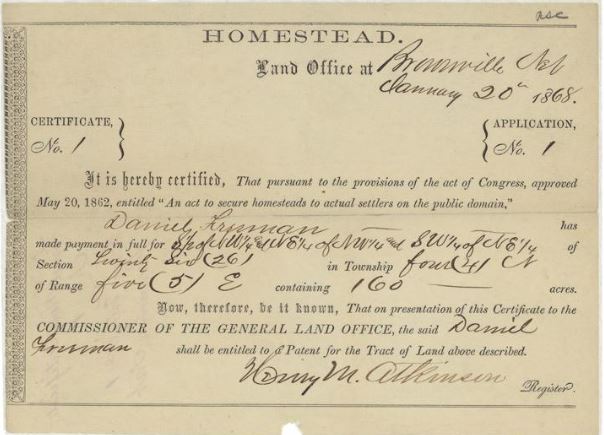 HOMESTEAD.
Land Office at Brownville Neb
January 20th 1868.
CERTIFICATE, No. 1
APPLICATION, No. 1
It is hereby certified, That pursuant to the provisions of the act of Congress, approved
May 20, 1862, entitled "An act to secure homesteads to actual settlers on the public domain,"
Daniel Freeman has
made payment in full for S½ of NW¼ & NE¼ of NW¼ and SW¼ of NE¼ of
Section Twenty Six (26) in Township four (4) N
of Range five (5) E containing 160 acres.
Now, therefore, be it known, That on presentation of this Certificate to the
COMMISSIONER OF THE GENERAL LAND OFFICE, the said Daniel
Freeman shall be entitled to a Patent for the Tract of Land above described.
Henry M. Atkinson
Register.